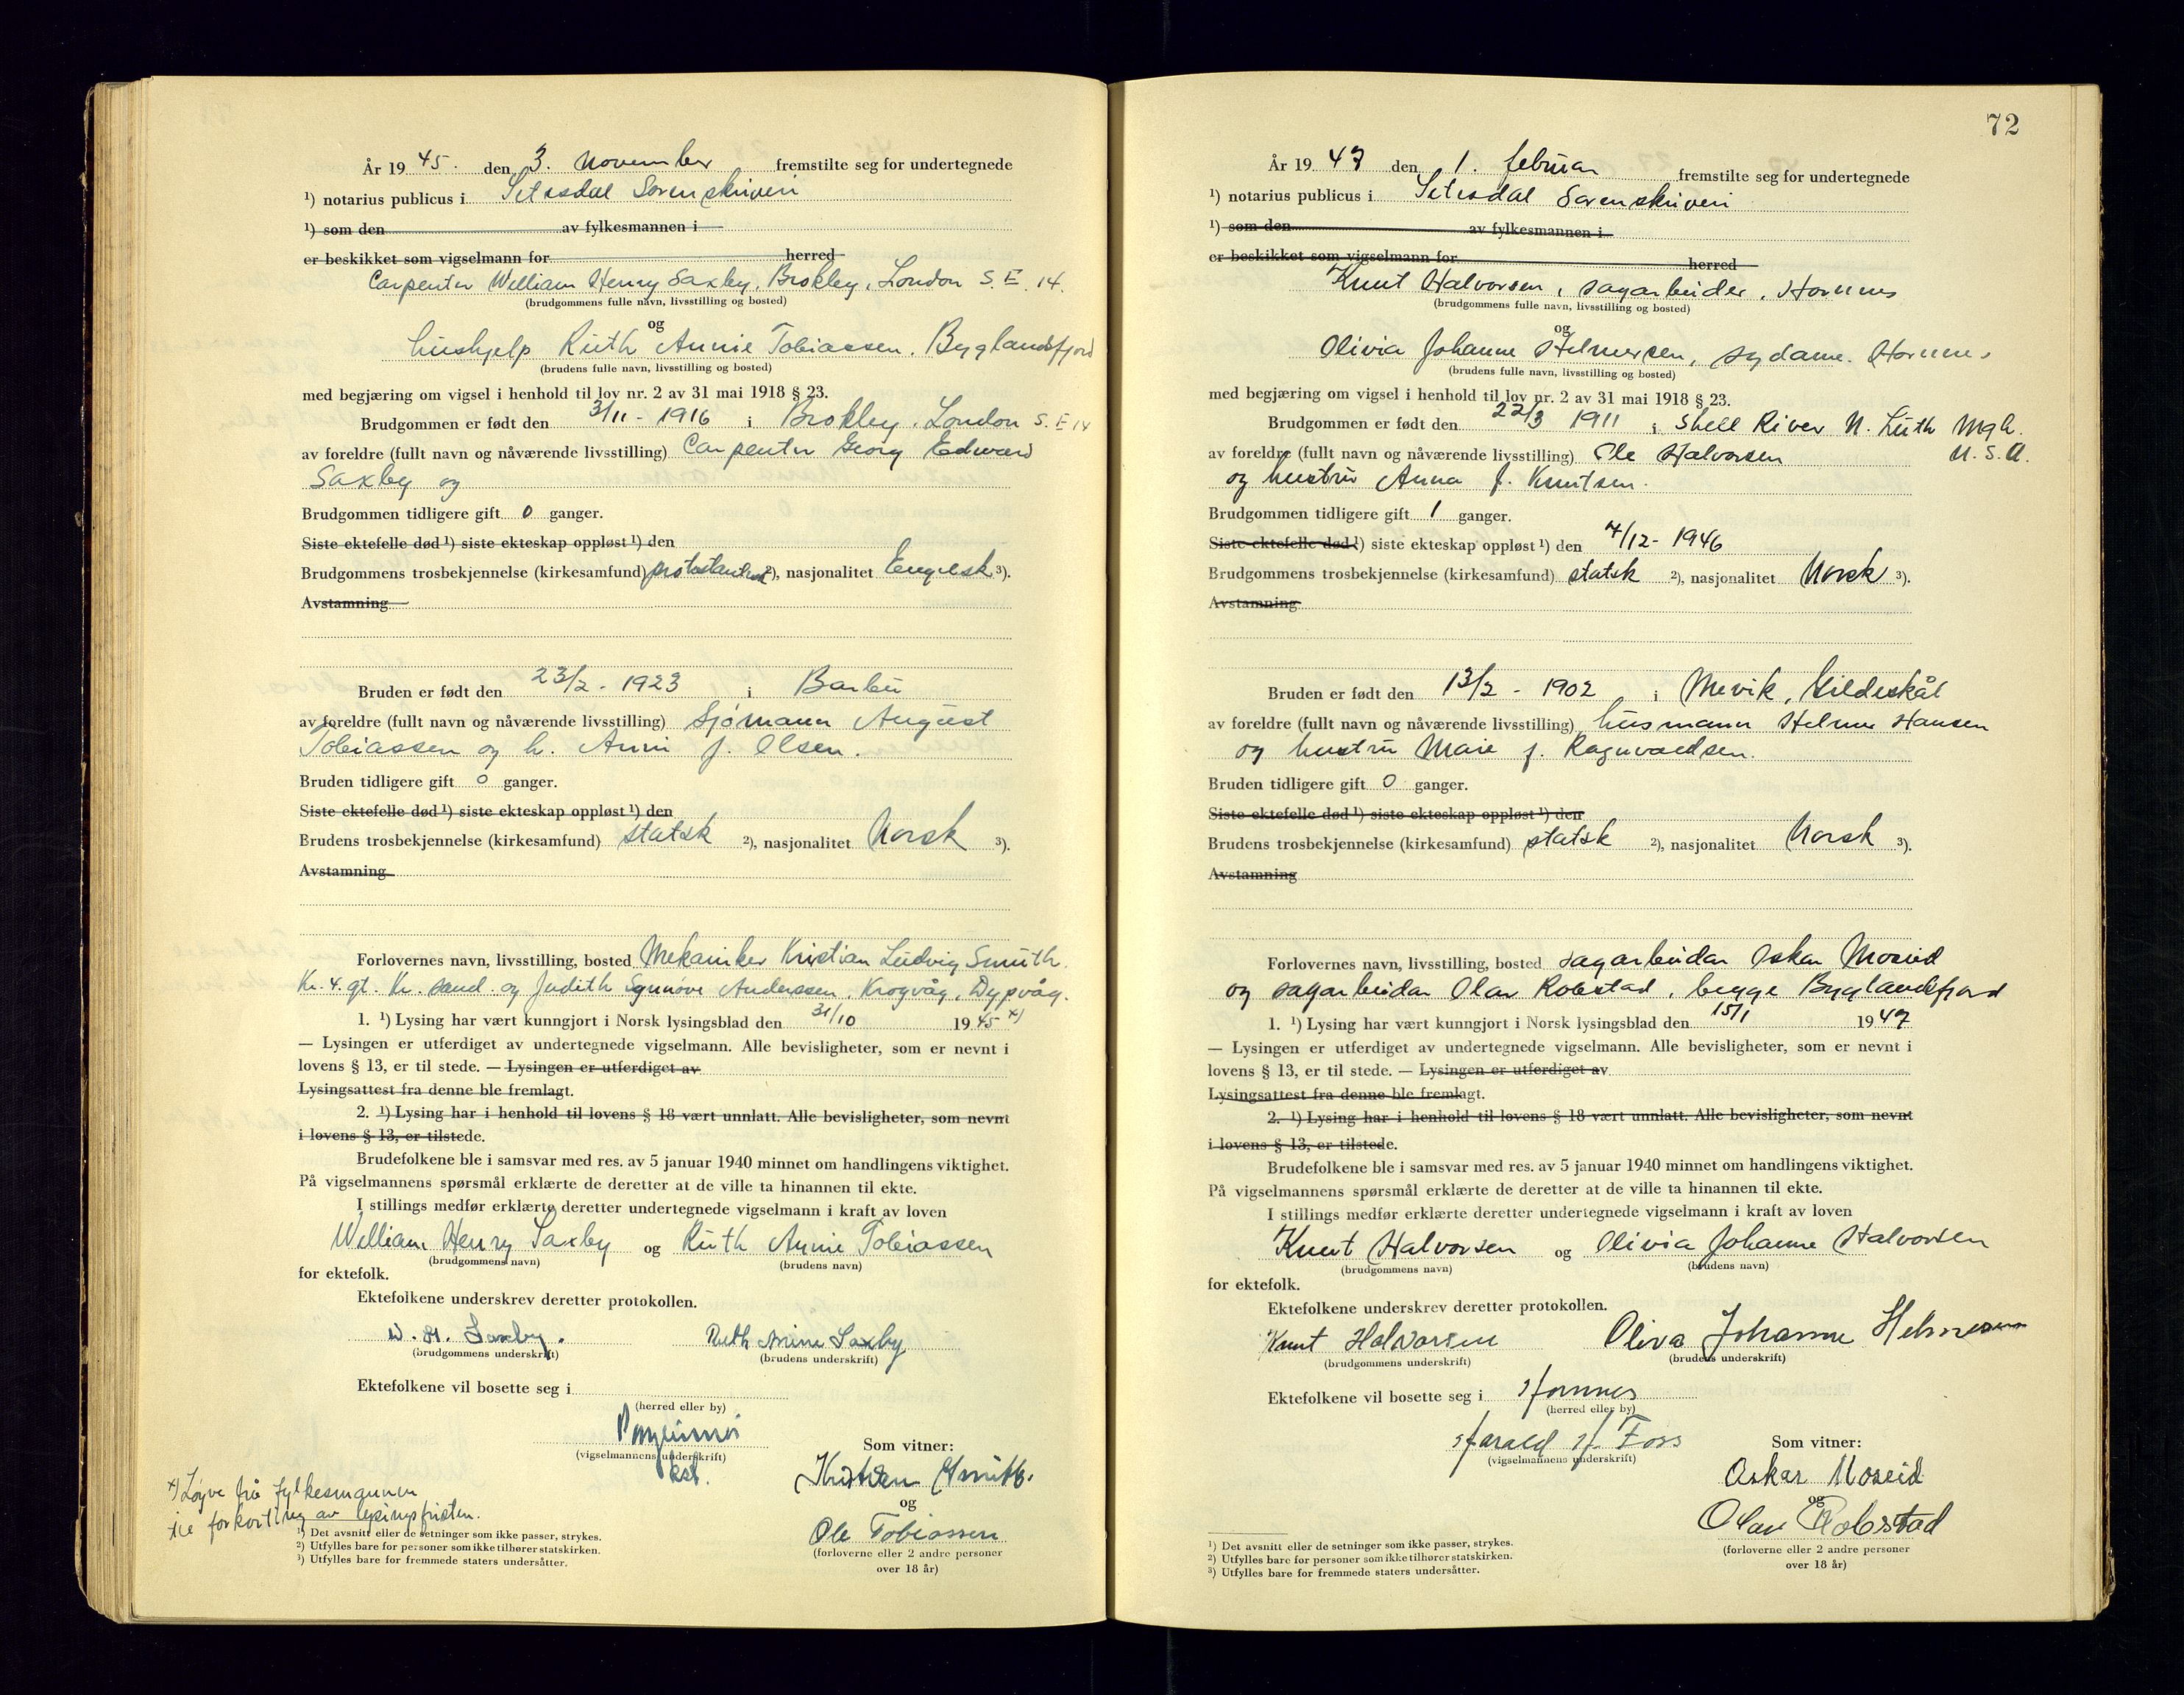 År 19 45. den 3. November fremstilte seg for undertegnede
¹) notarius publicus i Setesdal Sorenskriveri
¹) som den av fylkesmannen i
er beskikket som vigselmann for herred
Carpenter William Henry Saxby, Brokley, London S.E. 14.
(brudgommens fulle navn, livsstilling og bosted)
og
hushjelp Ruth Annie Tobiassen. Byglandsfjord
(brudens fulle navn, livsstilling og bosted)
med begjæring om vigsel i henhold til lov nr. 2 av 31 mai 1918 § 23.
Brudgommen er født den 3/11 - 1916 i Brokley. London S.E 14
av foreldre (fullt navn og nåværende livsstilling) Carpenter Georg Edward
Saxby og
Brudgommen tidligere gift 0 ganger.
Siste ektefelle død ¹) siste ekteskap oppløst ¹) den
Brudgommens trosbekjennelse (kirkesamfund) protestantisk ²), nasjonalitet Engelsk ³).
Avstamning
Bruden er født den 23/2 - 1923 i Barbu
av foreldre (fullt navn og nåværende livsstilling) Sjömann August
Tobiassen og h. Anni f. Olsen.
Bruden tidligere gift 0 ganger.
Siste ektefelle død ¹) siste ekteskap oppløst ¹) den
Brudens trosbekjennelse (kirkesamfund) statsk ²), nasjonalitet Norsk ³).
Avstamning
Forlovernes navn, livsstilling, bosted Mekaniker Kristian Ludvig Smith.
Kr. 4. gt. Kr. sand. og Judith Synnøve Anderssen, Krogvåg, Dypvåg.
1. ¹) Lysing har vært kunngjort i Norsk lysingsblad den 31/10 1945 x)
— Lysingen er utferdiget av undertegnede vigselmann. Alle bevisligheter, som er nevnt i
lovens § 13, er til stede. — Lysingen er utferdiget av
Lysingsattest fra denne ble fremlagt.
2. ¹) Lysing har i henhold til lovens § 18 vært unnlatt. Alle bevisligheter, som nevnt
i lovens § 13, er tilstede.
Brudefolkene ble i samsvar med res. av 5 januar 1940 minnet om handlingens viktighet.
På vigselmannens spørsmål erklærte de deretter at de ville ta hinannen til ekte.
I stillings medfør erklærte deretter undertegnede vigselmann i kraft av loven
William Henry Saxby og Ruth Annie Tobiassen
(brudgommens navn) (brudens navn)
for ektefolk.
Ektefolkene underskrev deretter protokollen.
W. H. Saxby. Ruth Annie Saxby
(brudgommens underskrift) (brudens underskrift)
Ektefolkene vil bosette seg i
(herred eller by)
(vigselmannens underskrift)
kst.
Som vitner:
Kristian Smith.
og
Ole Tobiassen
(forloverne eller 2 andre personer
over 18 år)
x) Løyve frå fylkesmannen
til forkorting av lysingsfristen.
¹) Det avsnitt eller de setninger som ikke passer, strykes.
²) Utfylles bare for personer som ikke tilhører statskirken.
³) Utfylles bare for fremmede staters undersåtter.
72
År 19 47 den 1. februar fremstilte seg for undertegnede
¹) notarius publicus i Setesdal Sorenskriveri
¹) som den av fylkesmannen i
er beskikket som vigselmann for herred
Knut Halvorsen, sagarbeider, Hornnes
(brudgommens fulle navn, livsstilling og bosted)
og
Olivia Johanne Helmersen, sydame. Hornnes
(brudens fulle navn, livsstilling og bosted)
med begjæring om vigsel i henhold til lov nr. 2 av 31 mai 1918 § 23.
Brudgommen er født den 22/3 1911 i Shell River N. Luth Mgh.
av foreldre (fullt navn og nåværende livsstilling) Ole Halvorsen U.S.A.
og hustru Anna f. Knutsen.
Brudgommen tidligere gift 1 ganger.
Siste ektefelle død ¹) siste ekteskap oppløst ¹) den 7/12- 1946
Brudgommens trosbekjennelse (kirkesamfund) statsk ²), nasjonalitet Norsk ³).
Avstamning
Bruden er født den 13/2 - 1902 i Mevik, Gildeskål
av foreldre (fullt navn og nåværende livsstilling) husmann Helmer Hansen
og hustru Marie f. Ragnvaldsen.
Bruden tidligere gift 0 ganger.
Siste ektefelle død ¹) siste ekteskap oppløst ¹) den
Brudens trosbekjennelse (kirkesamfund) statsk ²), nasjonalitet Norsk ³).
Avstamning
Forlovernes navn, livsstilling, bosted sagarbeidar Oskar Moseid
og sagarbeidar Olav Robstad, begge Byglandsfjord
1. ¹) Lysing har vært kunngjort i Norsk lysingsblad den 15/1 1947
— Lysingen er utferdiget av undertegnede vigselmann. Alle bevisligheter, som er nevnt i
lovens § 13, er til stede. — Lysingen er utferdiget av
Lysingsattest fra denne ble fremlagt.
2. ¹) Lysing har i henhold til lovens § 18 vært unnlatt. Alle bevisligheter, som nevnt
i lovens § 13, er tilstede.
Brudefolkene ble i samsvar med res. av 5 januar 1940 minnet om handlingens viktighet.
På vigselmannens spørsmål erklærte de deretter at de ville ta hinannen til ekte.
I stillings medfør erklærte deretter undertegnede vigselmann i kraft av loven
Knut Halvorsen og Olivia Johanne Halvorsen
(brudgommens navn) (brudens navn)
for ektefolk.
Ektefolkene underskrev deretter protokollen.
Knut Halvorsen Oliva Johanne Helmersen
(brudgommens underskrift) (brudens underskrift)
Ektefolkene vil bosette seg i Hornnes
(herred eller by)
Harald H. Foss
(vigselmannens underskrift)
Som vitner:
Oskar Moseid
og
Olav Robstad
(forloverne eller 2 andre personer
over 18 år)
¹) Det avsnitt eller de setninger som ikke passer, strykes.
²) Utfylles bare for personer som ikke tilhører statskirken.
³) Utfylles bare for fremmede staters undersåtter.